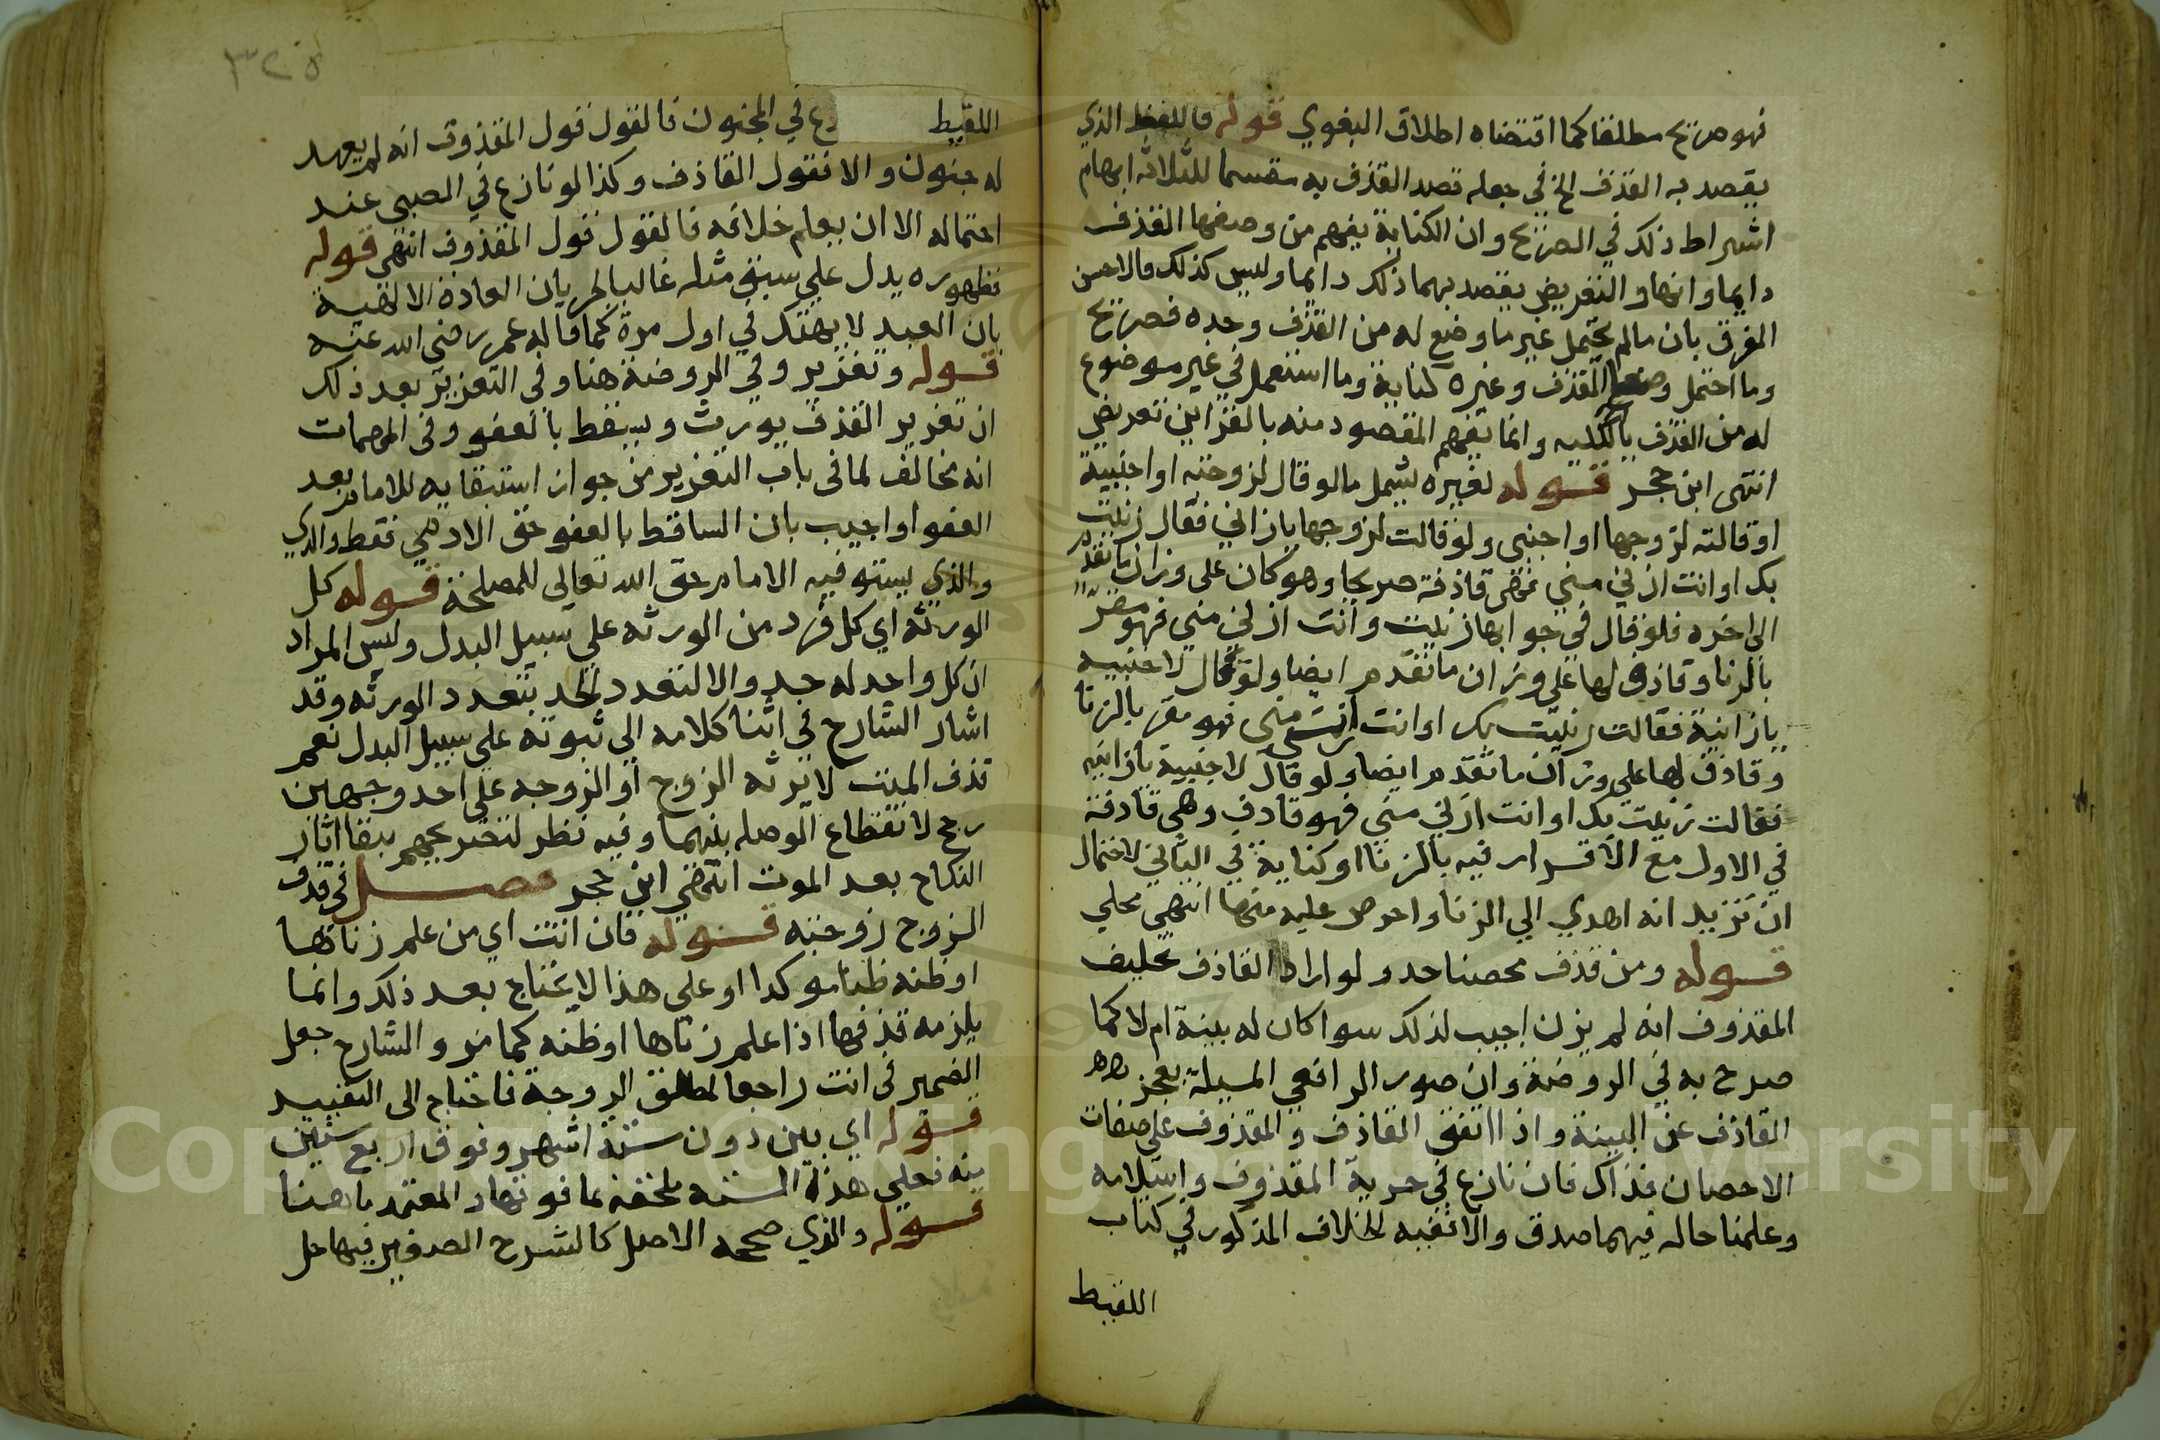 فهو صريح مطلقا كما اقتضاه اطلاق البغوي قوله فاللفظ الذي
يقصد به القذف الخ في جعله قصد القذف به مقسما للثلاثة ايهام
اشتراط ذلك في الصريح وان الكناية يفهم من وصفها القذف
دايما وانها والتعريض يقصد بهما ذلك دايما وليس كذلك فالاحسن
الفرق بان مالم يحتمل غير ما وضع له من القذف وحده فصريح
وما احتمل القذف وغيره كناية وما استعمل في غير موضوع
له من القذف بالكلية وانما يفهم المقصود منه بالقراين تعريض
انتهى ابن حجر قوله لغيره يشمل مالو قال لزوجته او اجنبية
او قالته لزوجها او اجنبى ولو قالت لزوجها يازاني فقال زنيت
بك او انت ازني مني فهي قاذفة صريحا وهو كان على وزان ما تقدم
الى اخره فلو قال في جوابها زنيت وانت ازني مني فهو مقر
بالزنا وقاذف لها على وزان ما تقدم ايضا ولو قال لاجنبيه
يازانية فقالت زنيت بك او انت ازني مني فهو مقر بالزنا
وقاذف لها على وزان ما تقدم ايضا ولو قال لاجنبية يازانيه
فقالت زنيت بك او انت ازني مني فهو قاذف وهي قاذفة
في الاول مع الاقرار فيه بالزنا او كناية في الثاني لاحتمال
ان تريد انه اهدي الي الزنا واحرص عليه منها انتهي محلي
قوله ومن قذف محصنا حد ولو اراد القاذف تحليف
المقذوف انه لم يزن اجيب لذلك سوا كان له بينة ام لا كما
صرح به في الروضة وان صور الرافعي المسيلة بعجز
القاذف عن البينة واذا اتفق القاذف والمقذوف على صفات
الاحصان فذاك فان نازع في حرية المقذوف واسلامه
وعلمنا حاله فيهما صدق والا ففيه الخلاف المذكور في كتاب
اللقيط
٣٢٥
اللقيط في المجنون فالقول قول المقذوف انه لم يعهد
له جنون والا فقول القاذف وكذا لو نازع في الصبى عند
احتماله الا ان يعلم خلافه فالقول قول المقذوف انتهى قوله
فظهوره يدل على سبق مثله غالبا لجريان العادة الالهية
بان العبد لا يهتك في اول مرة كما قاله عمر رضي الله عنه
قوله وتعزير وفي الروضة هنا وفي التعزير بعد ذلك
ان تعزير القذف يورث ويسقط بالعفو وفى المهمات
انه مخالف لما فى باب التعزير من جواز استيفايه للامام بعد
العفو اواجيب بان الساقط بالعفو حق الادمي فقط والذي
والذي يستوفيه الامام حق الله تعالى للمصلحة قوله كل
الورثة اي كل فرد من الورثه علي سبيل البدل وليس المراد
ان كل واحد له حد والا لتعدد الحد بتعدد الورثه وقد
اشار الشارح في اثنا كلامه الي ثبوته علي سبيل البدل نعم
قذف الميت لا يرثه الزوج او الزوجه على احد وجهين
رجح لانقطاع الوصله بينهما وفيه نظر لتصريحهم ببقا اثار
النكاح بعد الموت انتهي ابن حجر فصل في قذف
الزوج زوجته قوله فان اتت اي من علم زناها
او ظنه ظنا موكدا او على هذا لا يحتاج بعد ذلك وانما
يلزمه قذفها اذا علم زناها او ظنه كما مر والشارح جعل
الضمير فى اتت راجعا لمطلق الزوجة فاحتاج الى التقييد
قوله اي بين دون ستة اشهر وفوق اربع سنين
منه فعلى هذه الستة ملحقة بما فوقها والمعتمد ما هنا
قوله والذي صححه الاصل كالشرح الصغير فيها حل